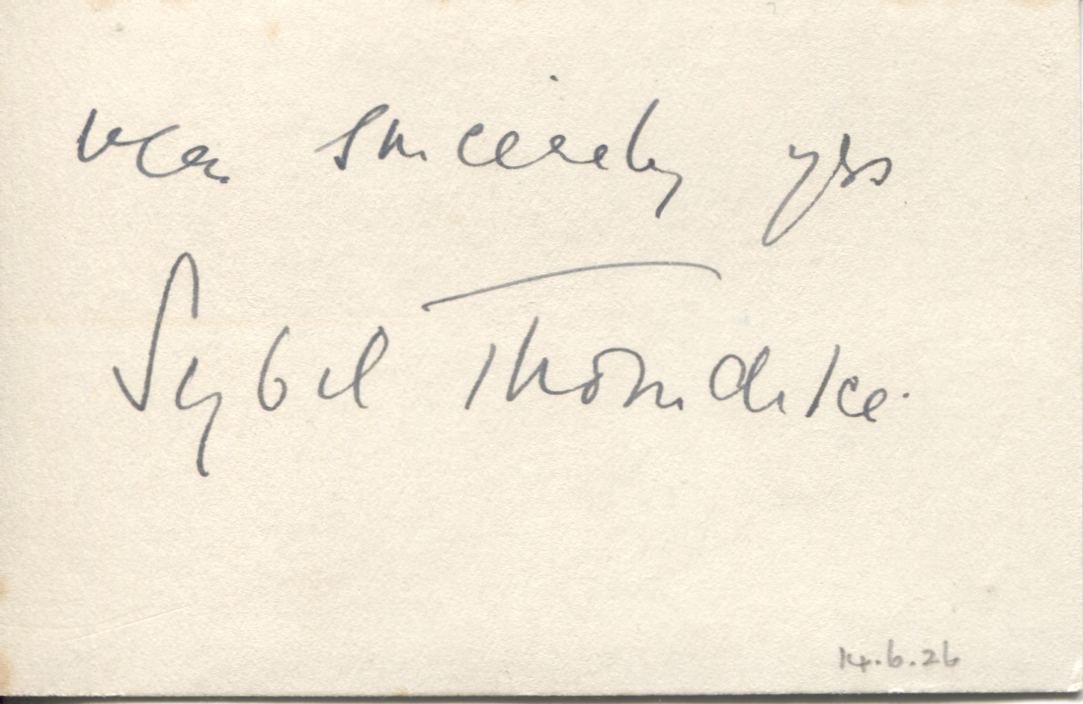 very sincerely yrs
Sybil Thorndike.
14.6.26